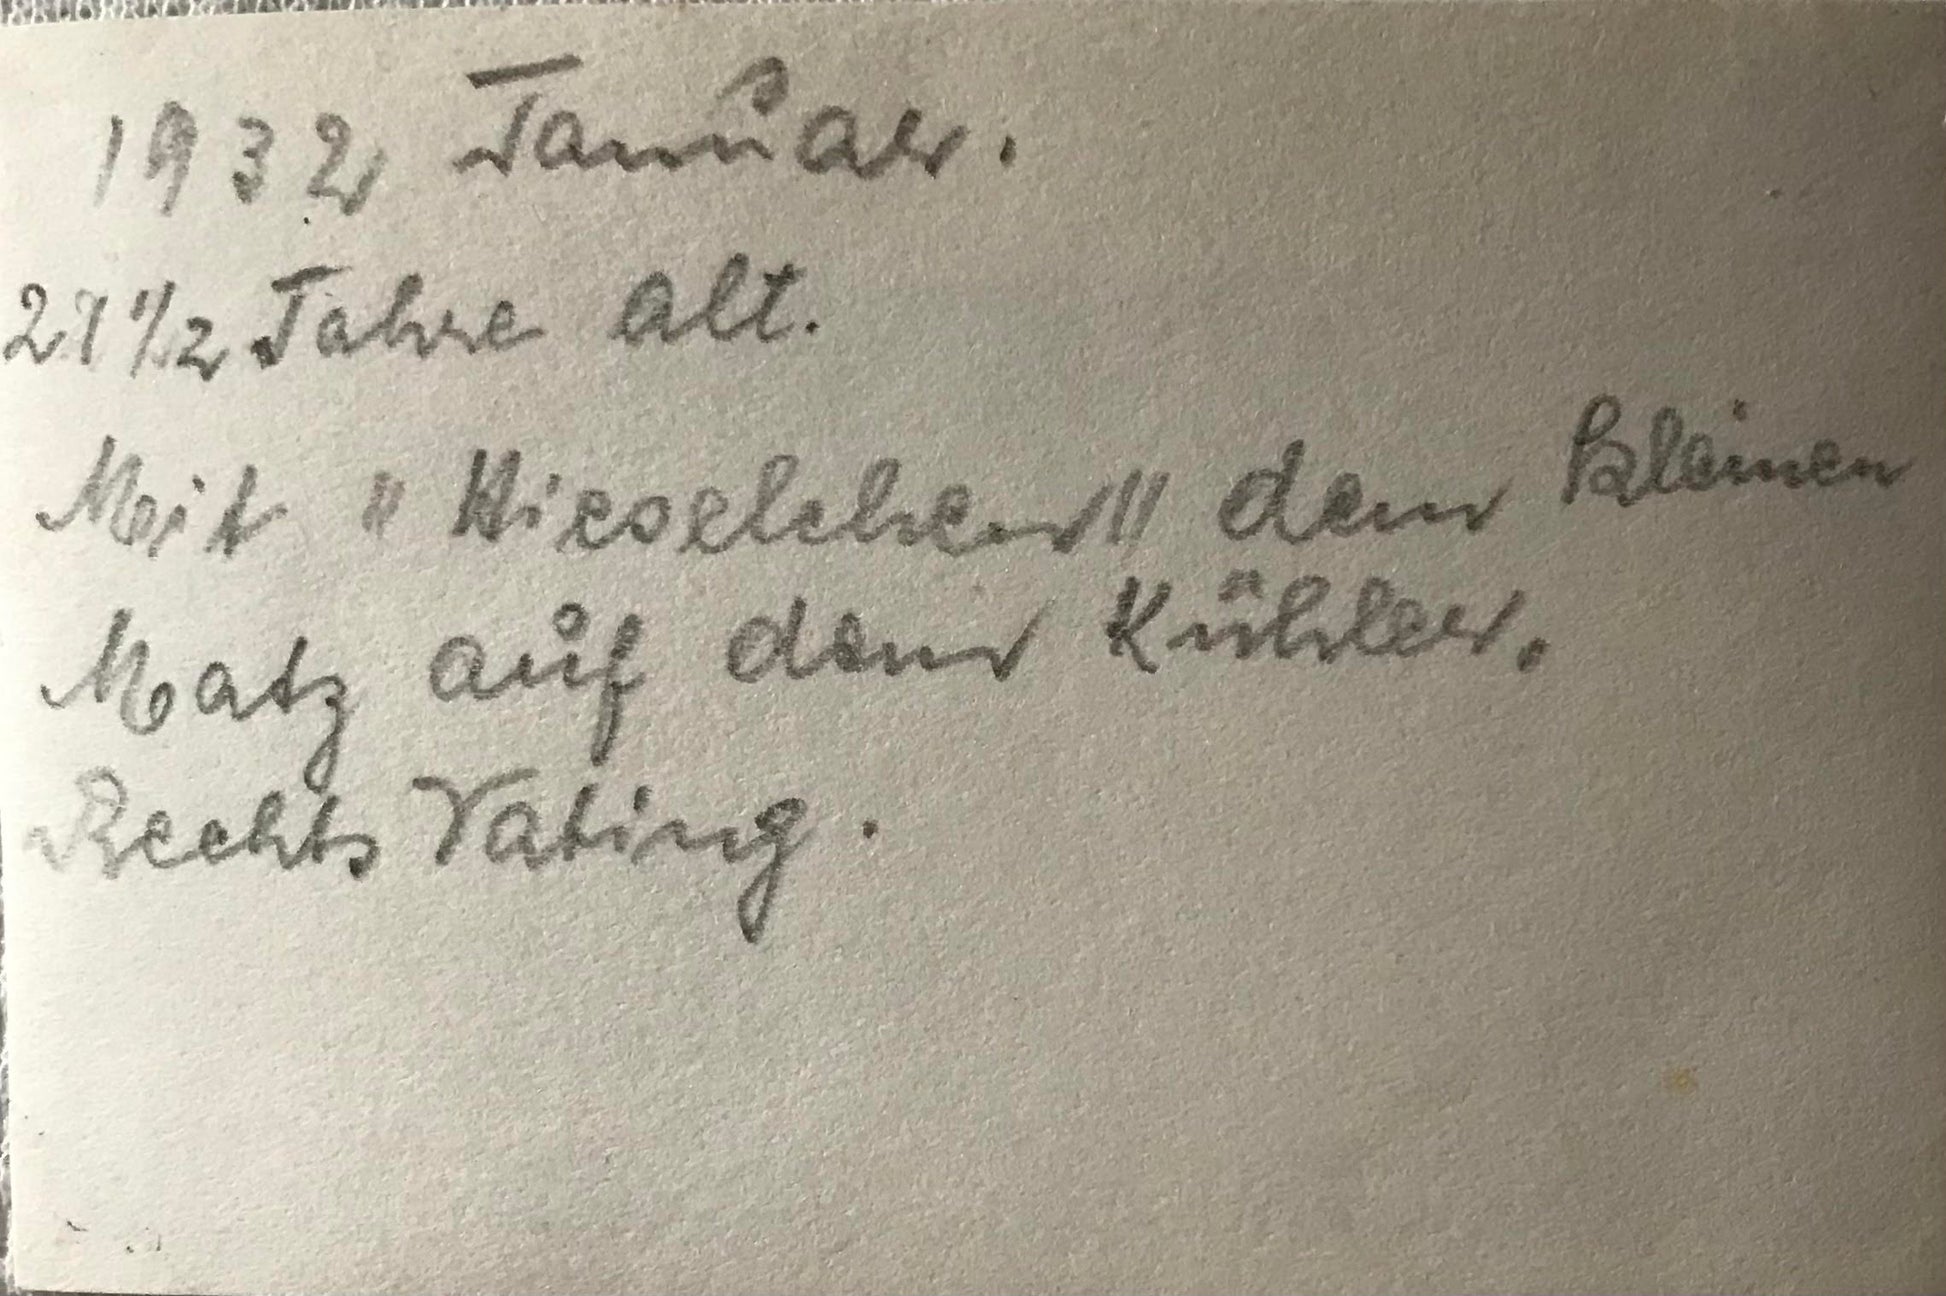 1932 Januar.
27 1/2 Jahre alt.
Mit "Wieselchen" dem kleinen
Matz auf dem Kühler.
Rechts Vating.